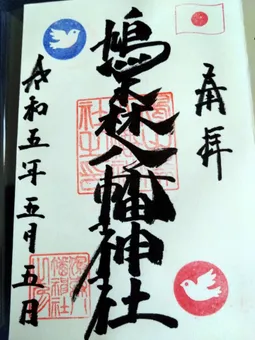 奉拝
鳩森八幡神社
令和五年五月五日